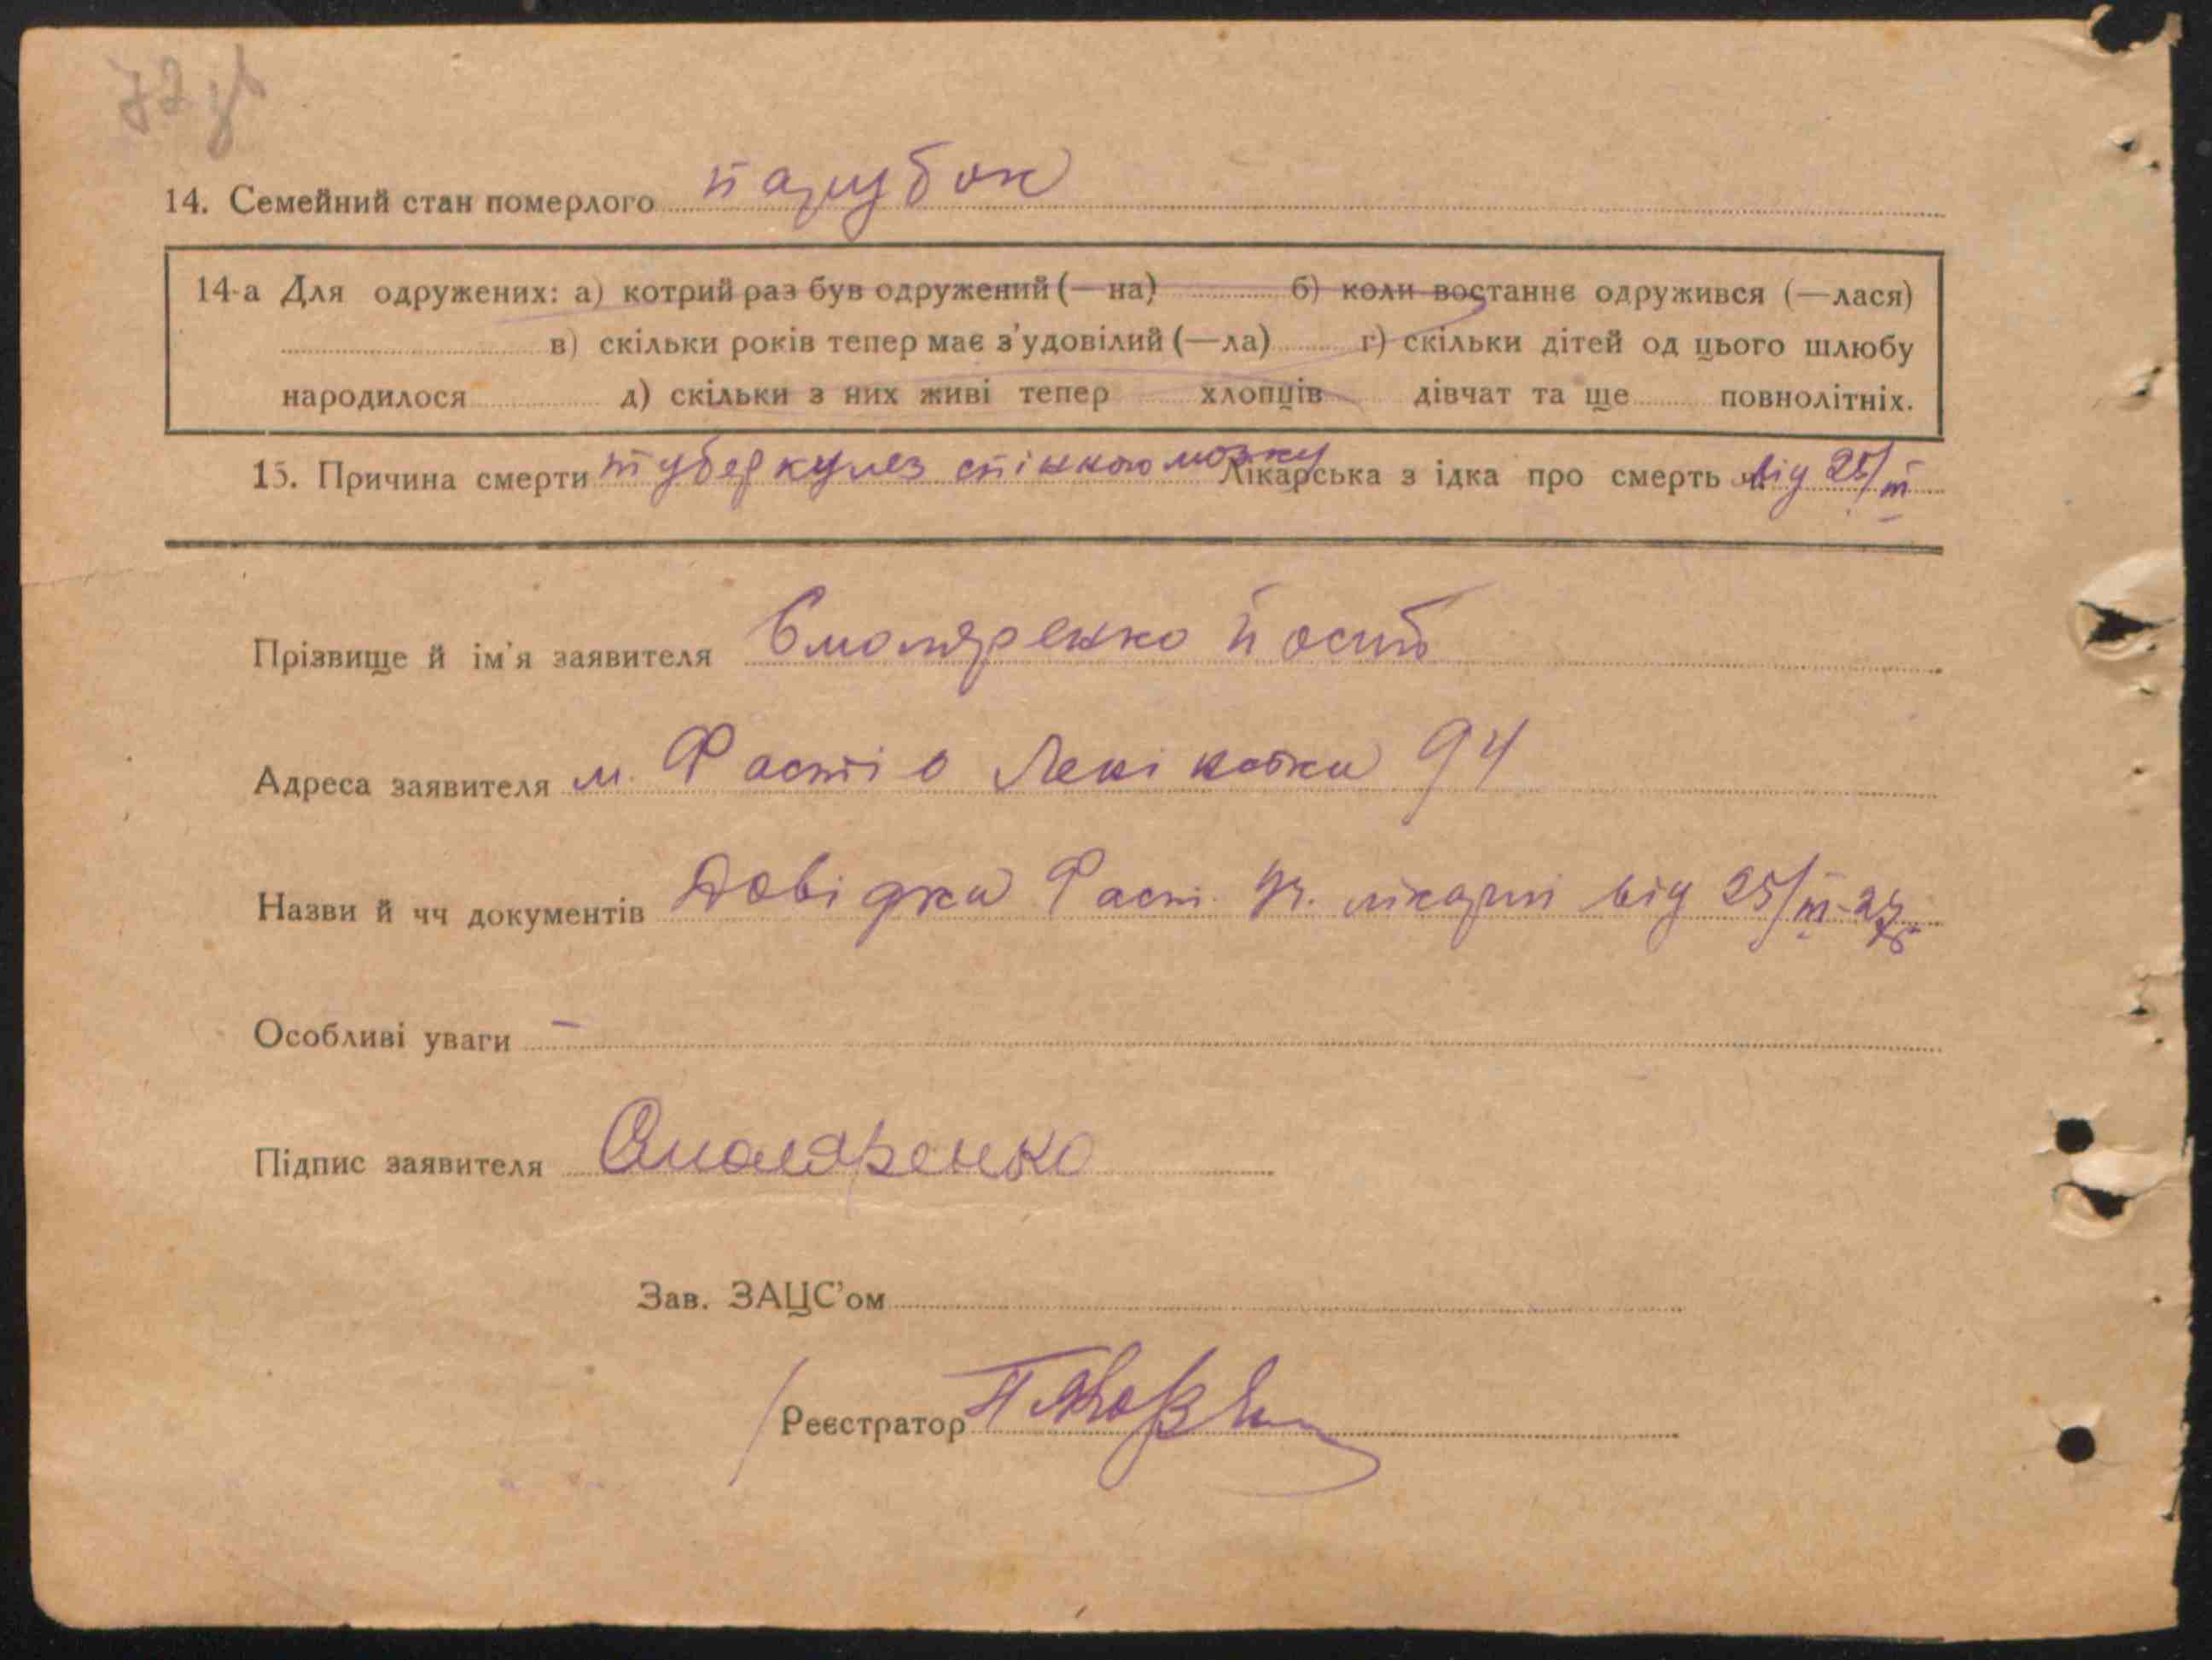 72 зв
14. Семейний стан померлого парубок
14-а Для одружених: а) котрий раз був одружений (—на) б) коли востаннє одружився (—лася)
в) скільки років тепер має з'удовілий (—ла) г) скільки дітей од цього шлюбу
народилося д) скільки з них живі тепер хлопців дівчат та ще повнолітніх.
15. Причина смерти туберкулез спінного мозку Лікарська з ідка про смерть від 25/III
Прізвище й ім'я заявителя Смоляренко Йосип
Адреса заявителя м. Фастів 94
Назви й чч документів Довідка Фаст. лікарні від 25/III
Особливі уваги —
Підпис заявителя Смоляренко
Зав. ЗАЦС'ом
Реєстратор